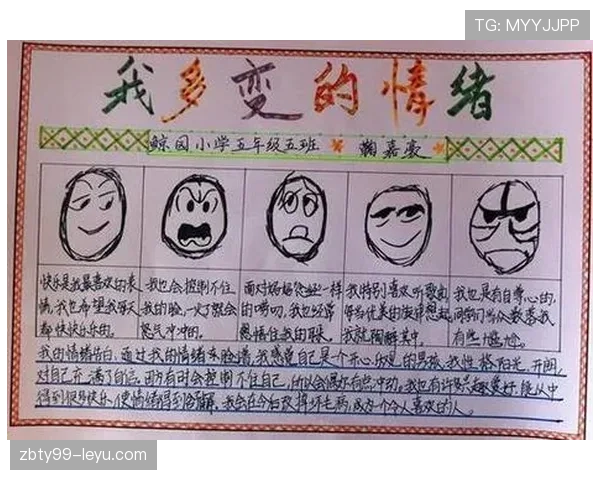 TG: MYYJJPP
我多变的情绪
鲸园小学五年级五班 鞠嘉豪
快乐是我最喜欢的表
情,我也希望我每天
都快快乐乐的。
我也会控制不住
我的脸,一火了就会
怒气冲冲的。
面对妈妈
的唠叨,我也经常
我特别喜欢听歌曲
每当优美的旋律想起
我就陶醉其中。
我也是有自尊心的,
同学们当众数落我
有些尴尬。
我的情绪告白:通过我的情绪朱脸墙,我感觉自己是个开心乐观的男孩,我性格阳光、开朗,
对自己充满了自信。因为有时会控制不住自己,所以会偶尔有些冲动。我也有许多兴趣爱好,能从中
得到很多快乐,使情绪得到舒解。我会在今后改掉坏毛病,成为个令人喜欢的人。
zbty99-leyu.com